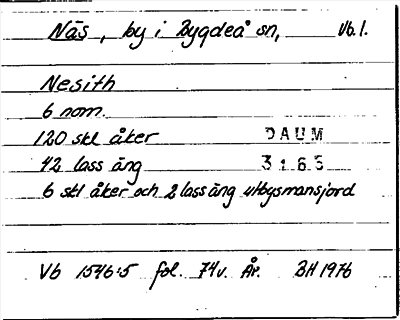 Näs, by i Bygdeå sn, Vb.l.
Nesith
6 nom.
120 skl åker DAUM
42 lass äng 3165
6 skl åker och 2 lass äng utbysmansjord
Vb 1546:5 fol. 74v. År. BH 1976